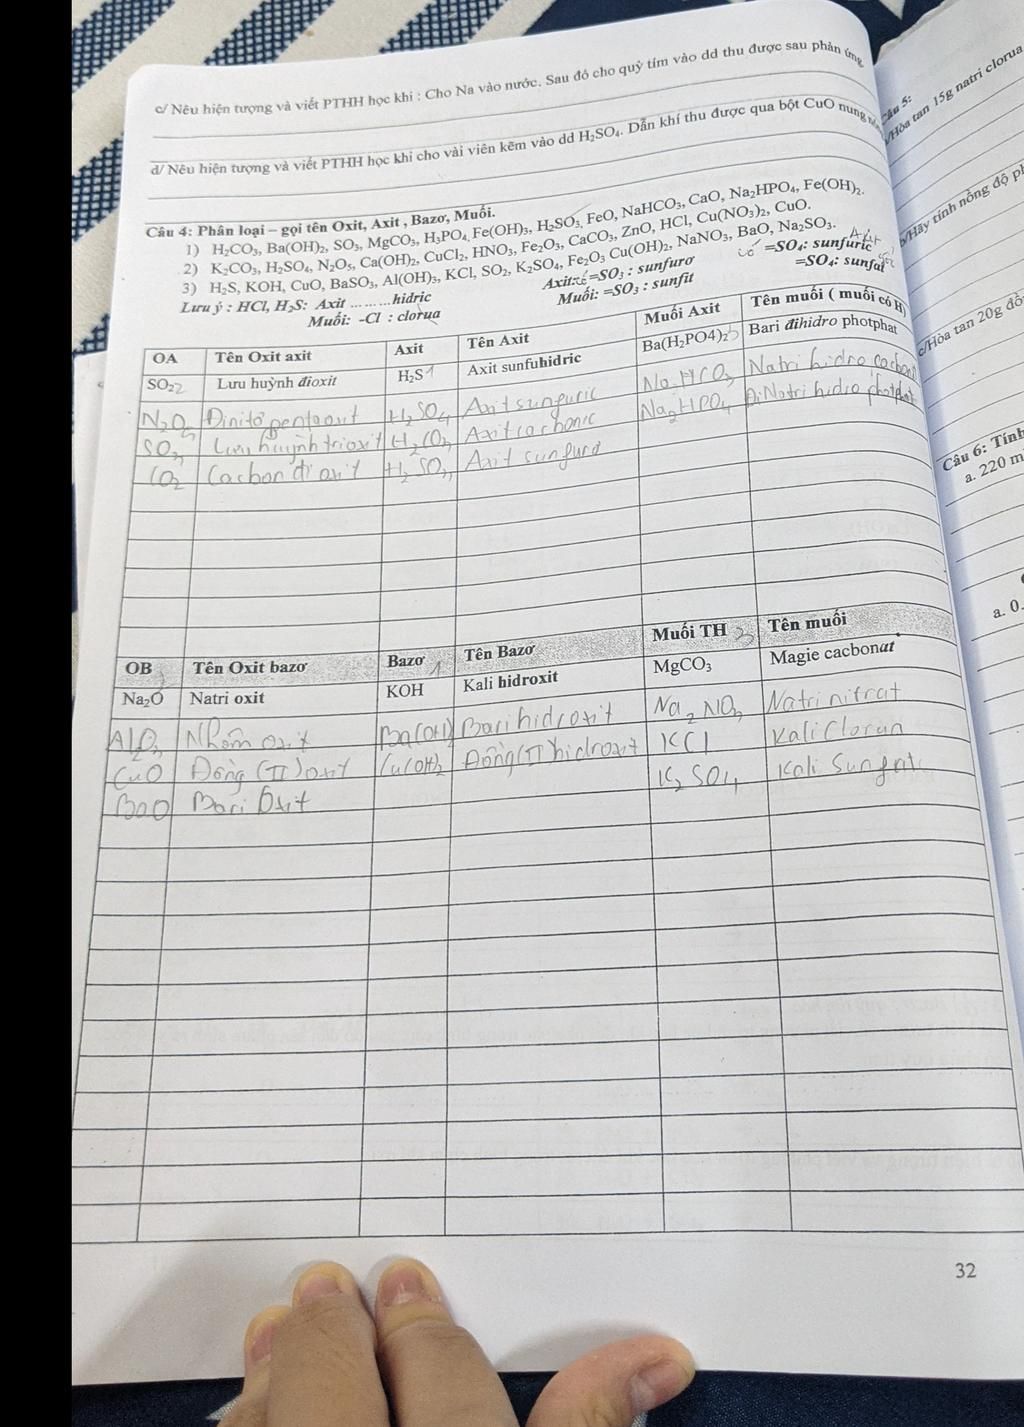 c/ Nêu hiện tượng và viết PTHH học khi : Cho Na vào nước. Sau đó cho quỳ tím vào dd thu được sau phản ứng
d/ Nêu hiện tượng và viết PTHH học khi cho vài viên kẽm vào dd H₂SO₄. Dẫn khí thu được qua bột CuO nung
Câu 4: Phân loại – gọi tên Oxit, Axit , Bazơ, Muối.
1) H₂CO₃, Ba(OH)₂, SO₃, MgCO₃, H₃PO₄, Fe(OH)₃, H₂SO₃, FeO, NaHCO₃, CaO, Na₂HPO₄, Fe(OH)₂.
2) K₂CO₃, H₂SO₄, N₂O₅, Ca(OH)₂, CuCl₂, HNO₃, Fe₂O₃, CaCO₃, ZnO, HCl, Cu(NO₃)₂, CuO.
3) H₂S, KOH, CuO, BaSO₃, Al(OH)₃, KCl, SO₂, K₂SO₄, Fe₂O₃ Cu(OH)₂, NaNO₃, BaO, Na₂SO₃.
Lưu ý : HCl, H₂S: Axit ………hidric Axit: =SO₃ : sunfurơ =SO₄: sunfuric
Muối: -Cl : clorua Muối: =SO₃ : sunfit =SO₄: sunfat
OA Tên Oxit axit Axit Tên Axit Muối Axit Tên muối ( muối có H)
SO₂ Lưu huỳnh đioxit H₂S Axit sunfuhidric Ba(H₂PO4)₂ Bari đihidro photphat
N₂O₅ Đinitơ pentaoxit H₂SO₄ Axit sunfuric Na HCO₃ Natri hidro cacbonat
SO₃ Lưu huỳnh trioxit H₂CO₃ Axit cacbonic Na₂HPO₄ ĐiNatri hidro photphat
CO₂ Cacbon đi oxit H₂SO₃ Axit sunfurơ
OB Tên Oxit bazơ Bazơ Tên Bazơ Muối TH Tên muối
Na₂O Natri oxit KOH Kali hidroxit MgCO₃ Magie cacbonat
Al₂O₃ Nhôm oxit Ba(OH) Bari hidroxit Na₂NO₃ Natri nitrat
CuO Đồng (II) oxit Cu(OH)₂ Đồng(II) hidroxit KCl Kali Clorua
BaO Bari Oxit K₂SO₄ Kali Sunfat
32
Câu 5:
a/Hòa tan 15g natri clorua
b/Hãy tính nồng độ
c/Hòa tan 20g
Câu 6: Tính
a. 220 m
a. 0.